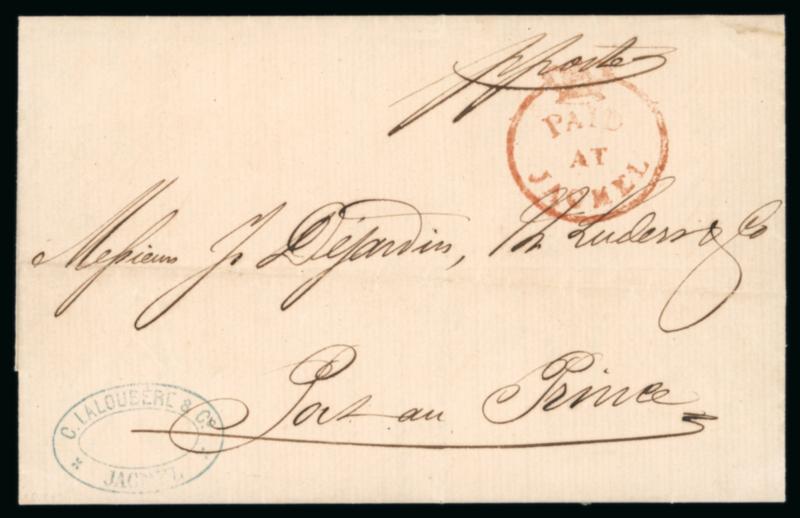 PAID
AT
JACMEL
Messieurs J. Déjardin, Th Luders & Co
Port au Prince
C. LALOUBÈRE & Cº
JACMEL